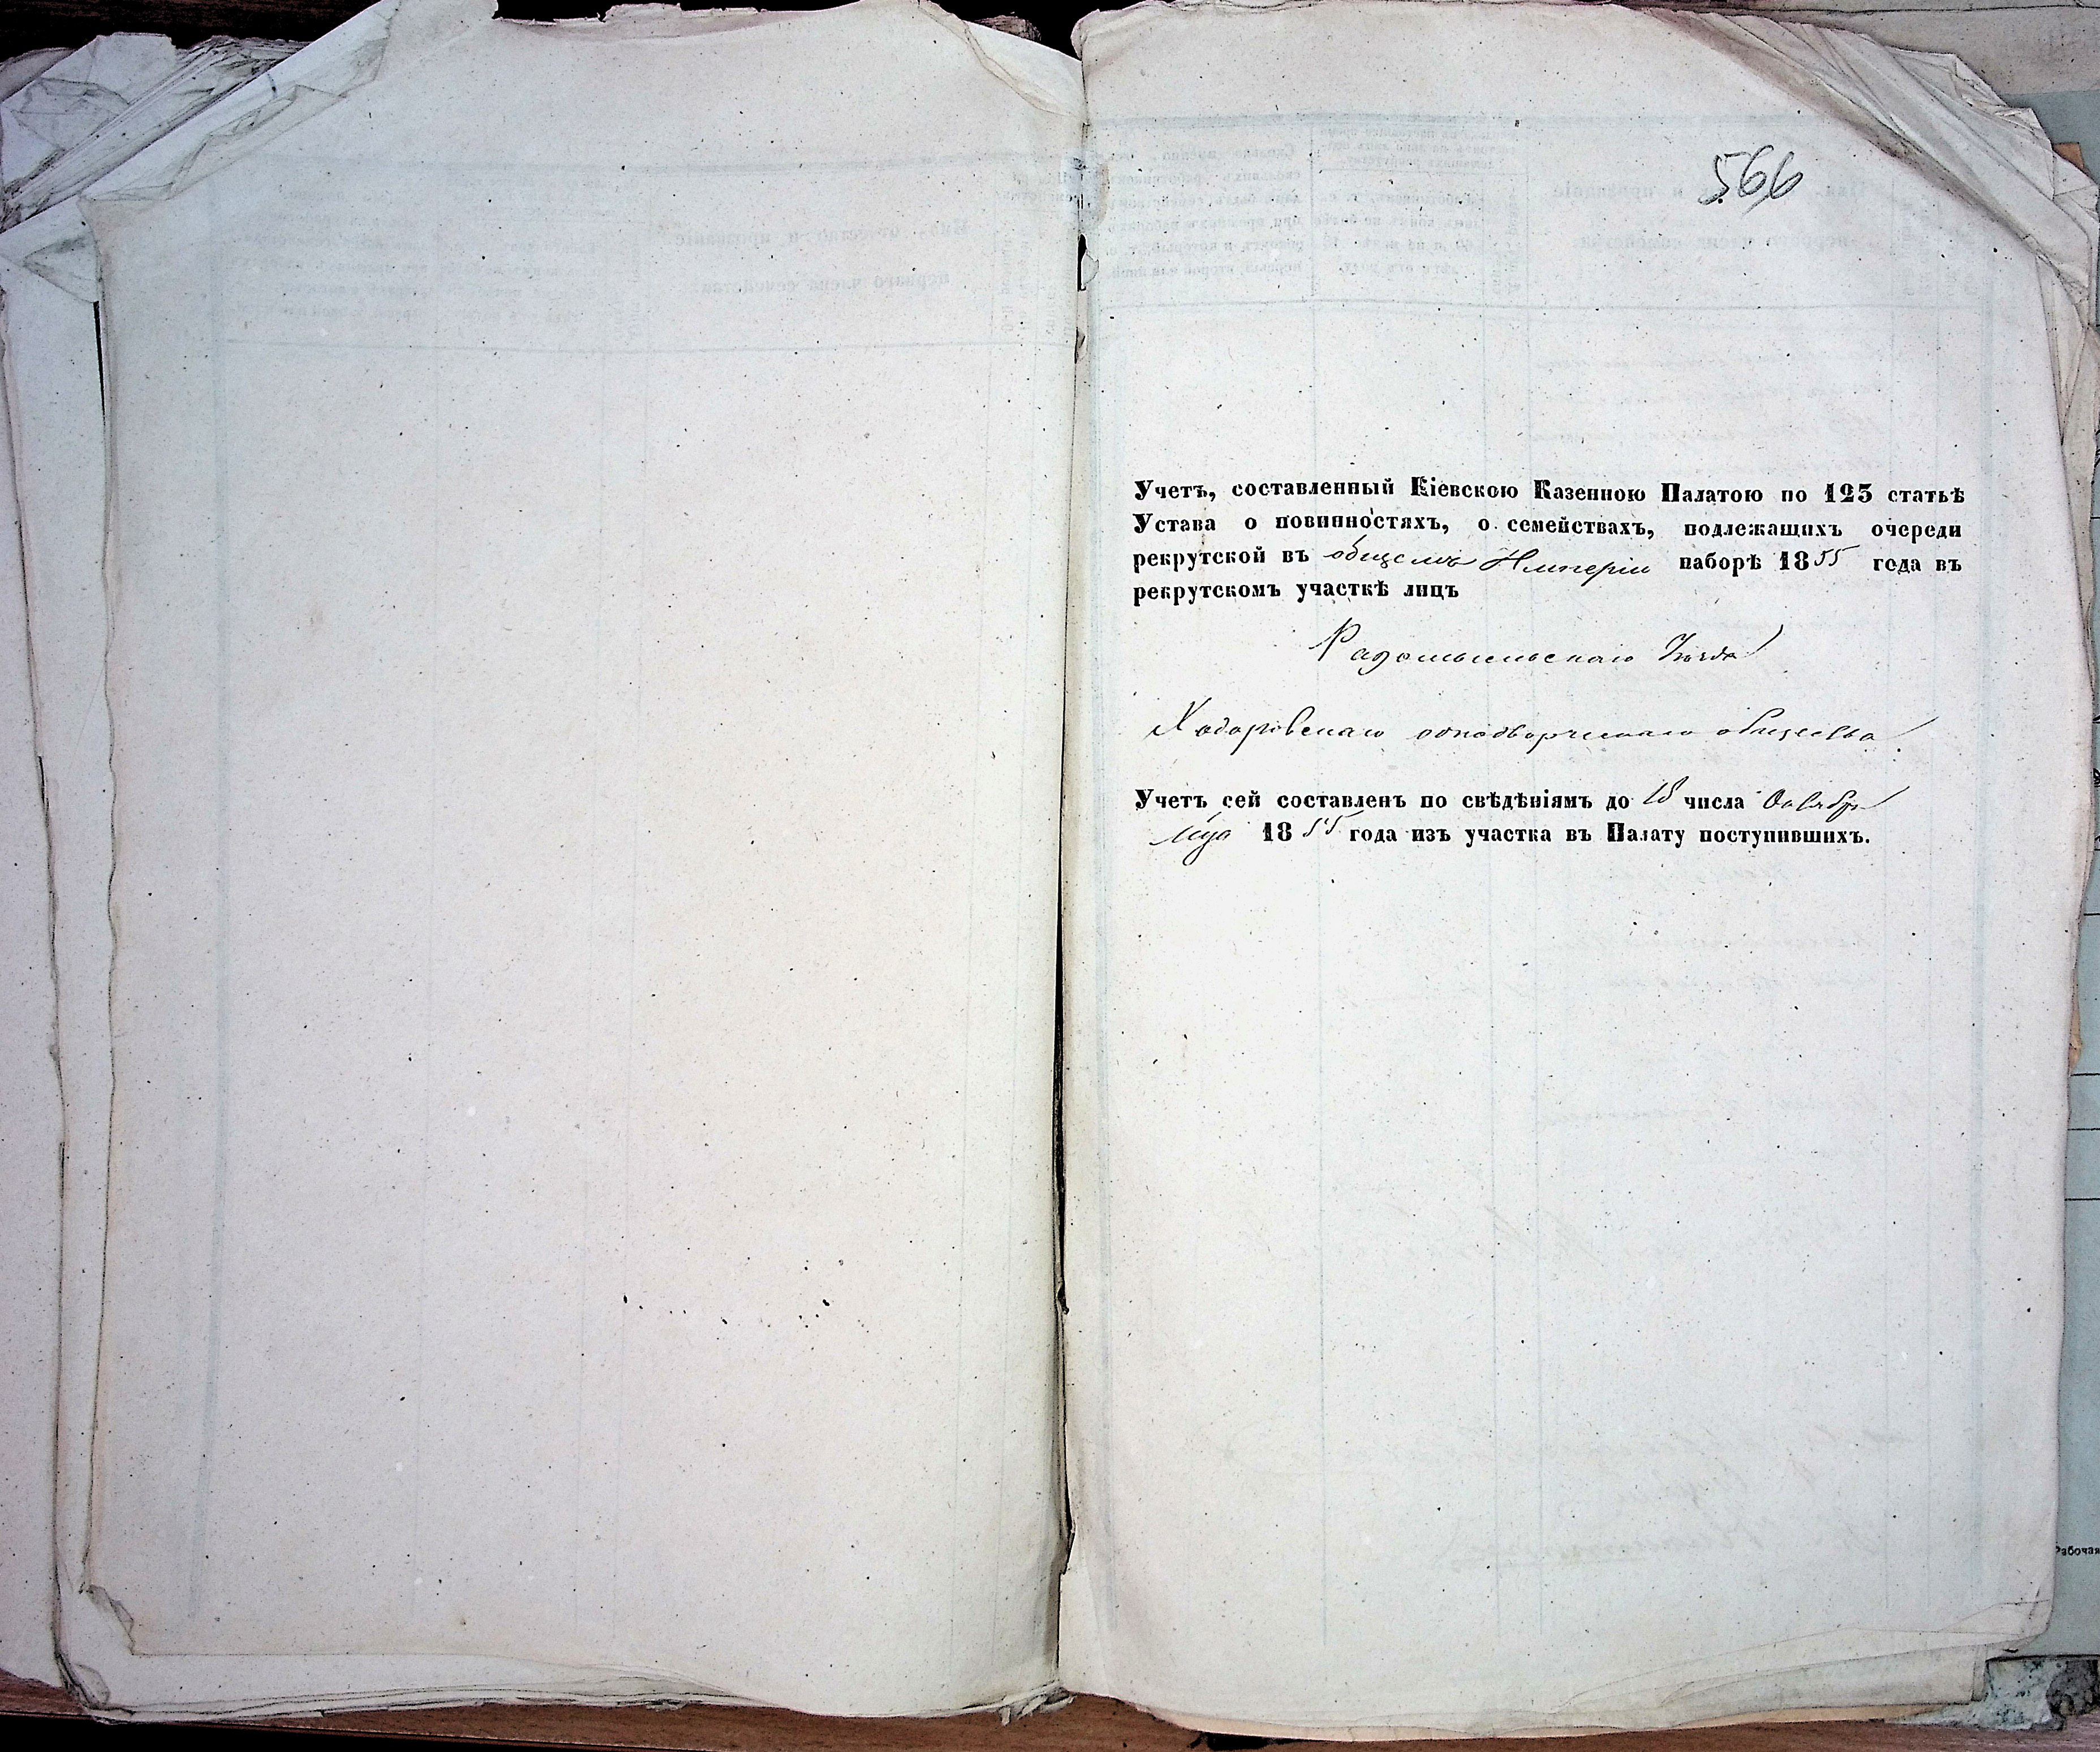 566
Учетъ, составленный Кіевскою Казенною Палатою по 123 статьѣ
Устава о повинностяхъ, о семействахъ, подлежащихъ очереди
рекрутской въ общемъ Имперіи наборѣ 1855 года въ
рекрутскомъ участкѣ лицъ
Радомысльскаго Уѣзда
Ходоровскаго однодворческаго общества.
Учетъ сей составленъ по свѣдѣніямъ до 18 числа Октября
мца 1855 года изъ участка въ Палату поступившихъ.
Рабочая